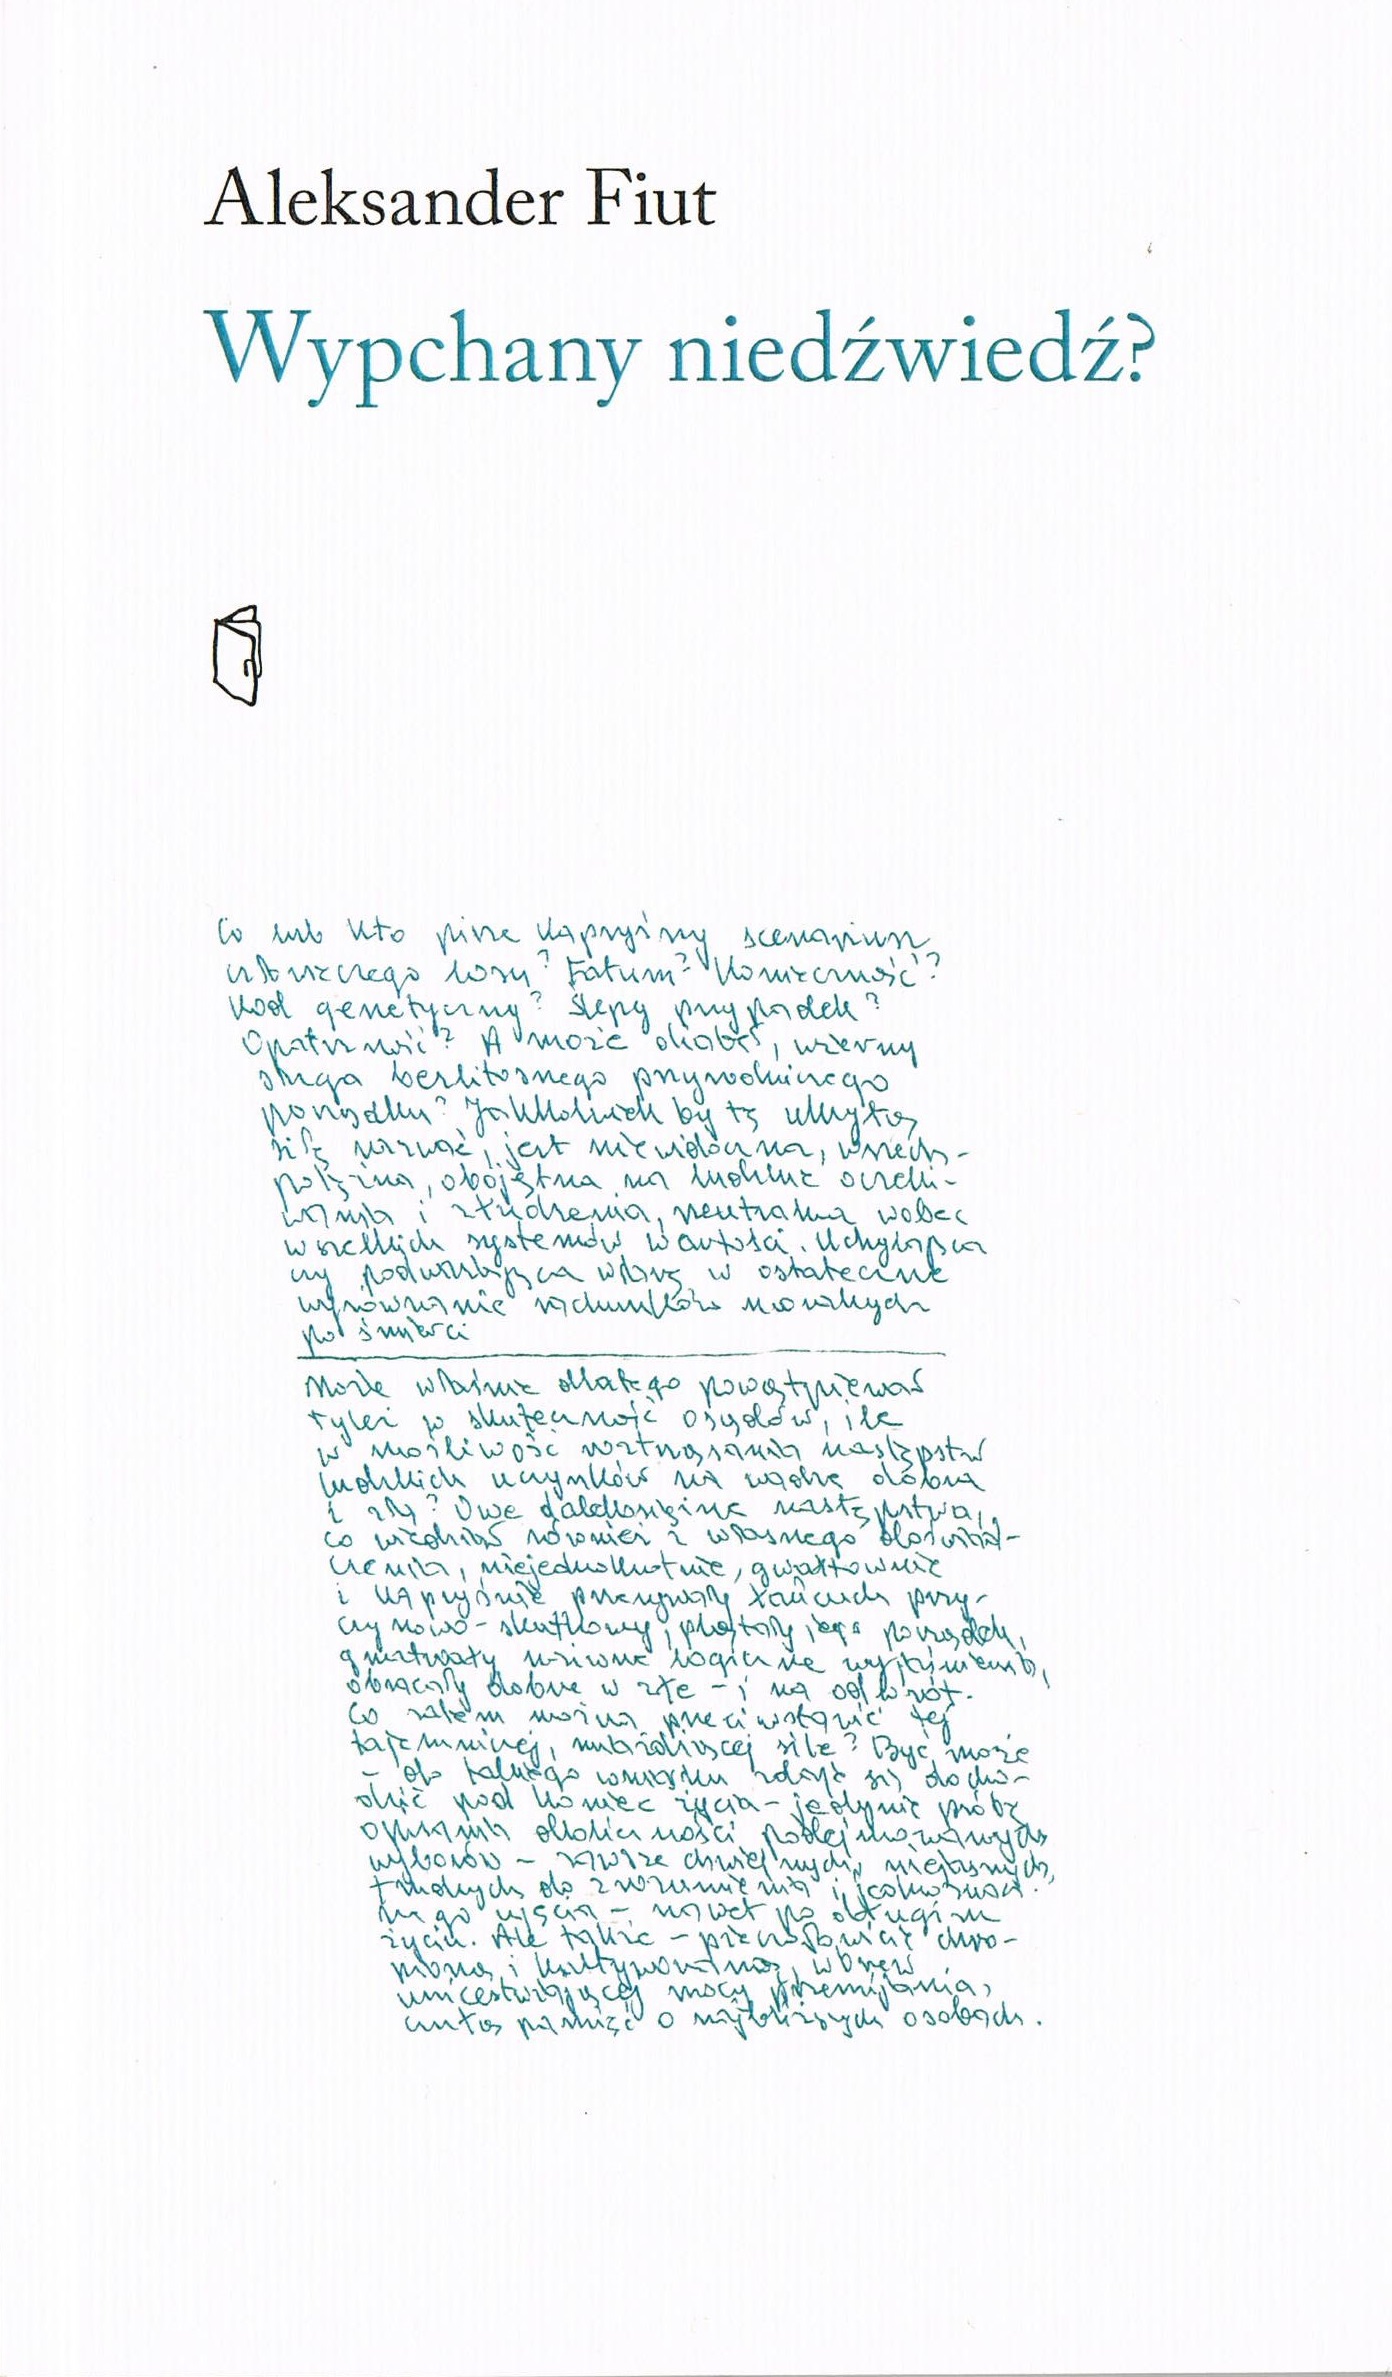 Aleksander Fiut
Wypchany niedźwiedź?
Co lub kto pisze kapryśny scenariusz
człowieczego losu? Fatum? Konieczność?
Kod genetyczny? Ślepy przypadek?
Opatrzność? A może diabeł, wierny
sługa bezlitosnego przyrodniczego
porządku? Jakkolwiek by tę ukrytą
siłę nazwać, jest niewidoczna, wszech-
potężna, obojętna na ludzkie oczeki-
wania i złudzenia, neutralna wobec
wszelkich systemów wartości. Uchylająca
czy podważająca wiarę w ostateczne
wyrównanie rachunków moralnych
po śmierci
Może właśnie dlatego powątpiewać
tyleż w skuteczność osądów, ile
w możliwość roztrząsania następstw
ludzkich uczynków na wadze dobra
i zła? Owe dalekosiężne następstwa,
co wiedział również z własnego doświad-
czenia, niejednokrotnie, gwałtownie
i kapryśnie przerywały łańcuch przy-
czynowo-skutkowy, plątały jego porządek,
gmatwały logiczne wyjaśnienia,
obracały dobre w złe – i na odwrót.
Co zatem można przeciwstawić tej
tajemniczej, sile? Być może
– do takiego wniosku zdaje się docho-
dzić pod koniec życia – jedynie próbę
opisania okoliczności podejmowanych
wyborów – zawsze chwiejnych, niejasnych,
trudnych do zrozumienia i jednoznacz-
nego ujęcia – nawet po długim
życiu. Ale także – pieczołowicie chro-
nioną i kultywowaną, wbrew
unicestwiającej mocy przemijania,
czułą pamięć o najbliższych osobach.